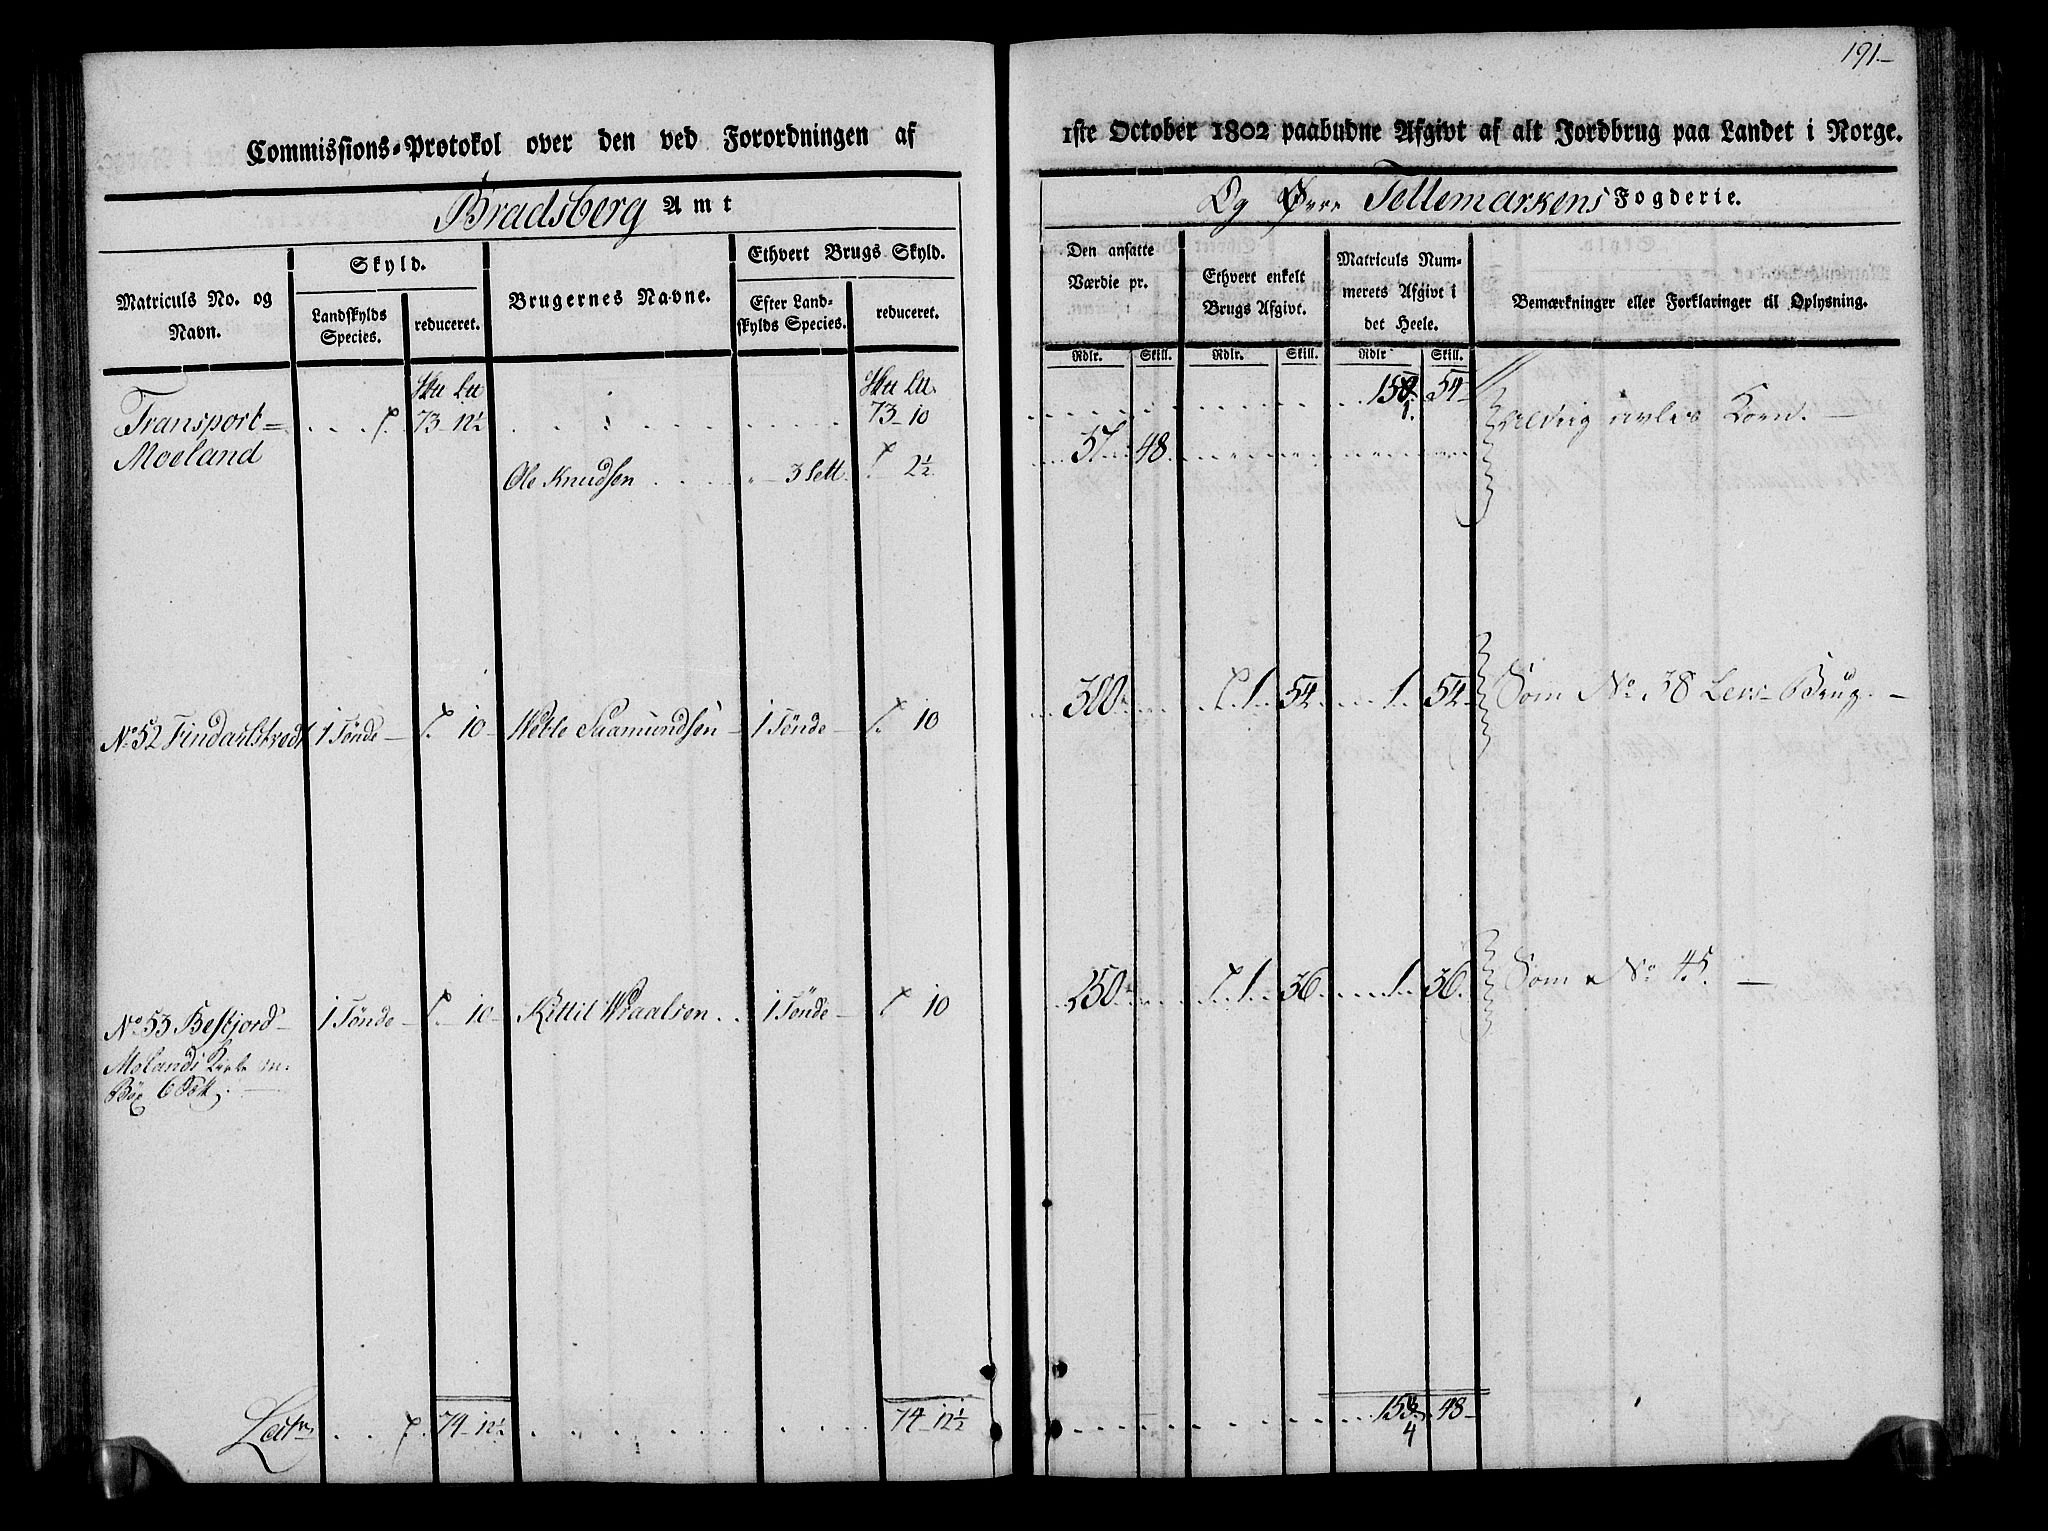 191-
Commissions-Protokol over den ved Forordningen af
1ste October 1802 paabudne Afgivt af alt Jordbrug paa Landet i Norge.
Bradsberg Amt
Og Øvre Tellemarkens Fogderie.
Matriculs No. og Navn.
Skyld.
Landskylds Species.
reduceret.
Brugernes Navne.
Ethvert Brugs Skyld.
Efter Landskylds Species.
reduceret.
Den ansatte Værdie pr.
Ethvert enkelt Brugs Afgivt.
Matriculs Nummerets Afgivt i det Heele.
Bemærkninger eller Forklaringer til Oplysning.
Rdlr. Skill. Rdlr. Skill. Rdlr Skill.
Transport= 73 12½ 73 10 54
Moeland
Ole Knudsen 3 Sett. 2½ 57 48 aldrig avles Korn.
No 52 1 Tönde 10 Saamundsen 1 Tönde 10 300 1 54 1 54 Som No 38 Brug.
No 53 1 Tönde 10 Kittil Wraalsen 1 Tönde 10 250 1 36 1 36 Som No 45.
Molands Kirke
6
Latr 74 12½ 74 12½ 48